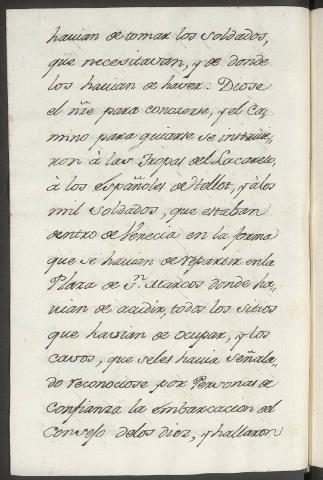 havian de tomar los soldados,
que necesitavan, y de donde
los havian de haver: Diose
el nre para conocerse, y el Ca,
mino para guiarse se instruie,
ron à las Tropas del
à los españoles de Hellot, y à los
mil soldados, que estaban
dentro de Venecia en la forma
que se havian de repartir en la
Plaza de Sn. Marcos donde ha,
vian de acudir, todos los sitios
que havian de ocupar, y los
casos, que seles havia señala,
do reconociose por Personas de
confianza la embarcacion del
Consejo delos diez, y hallaron